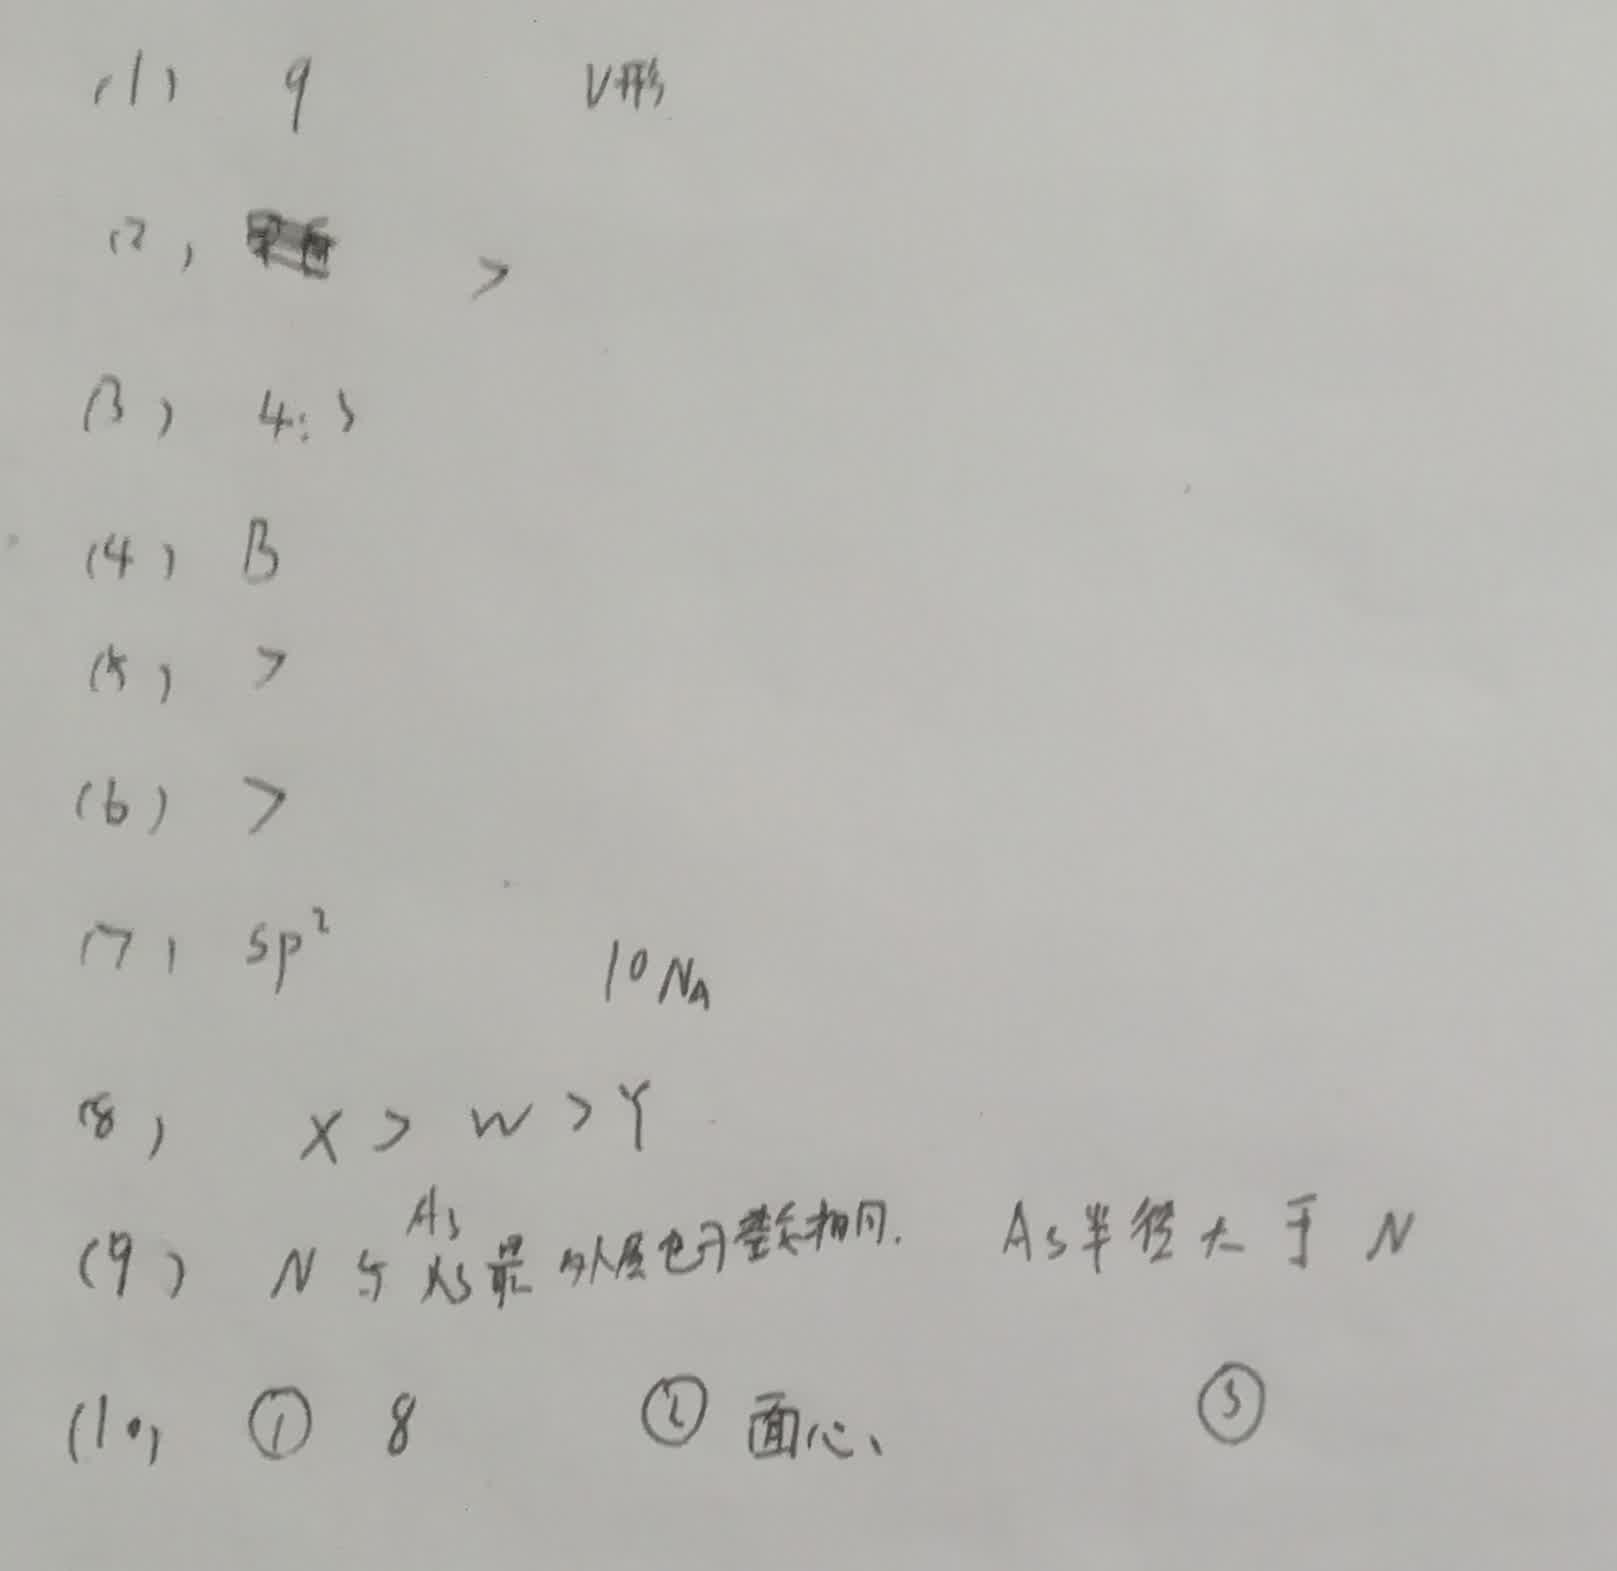 (1) 9 V形
(2) >
(3) 4:3
(4) B
(5) >
(6) >
(7) sp² 10NA
(8) X > W > Y
(9) N与As最外层电子数相同. As半径大于N
(10) ① 8 ② 面心、 ③